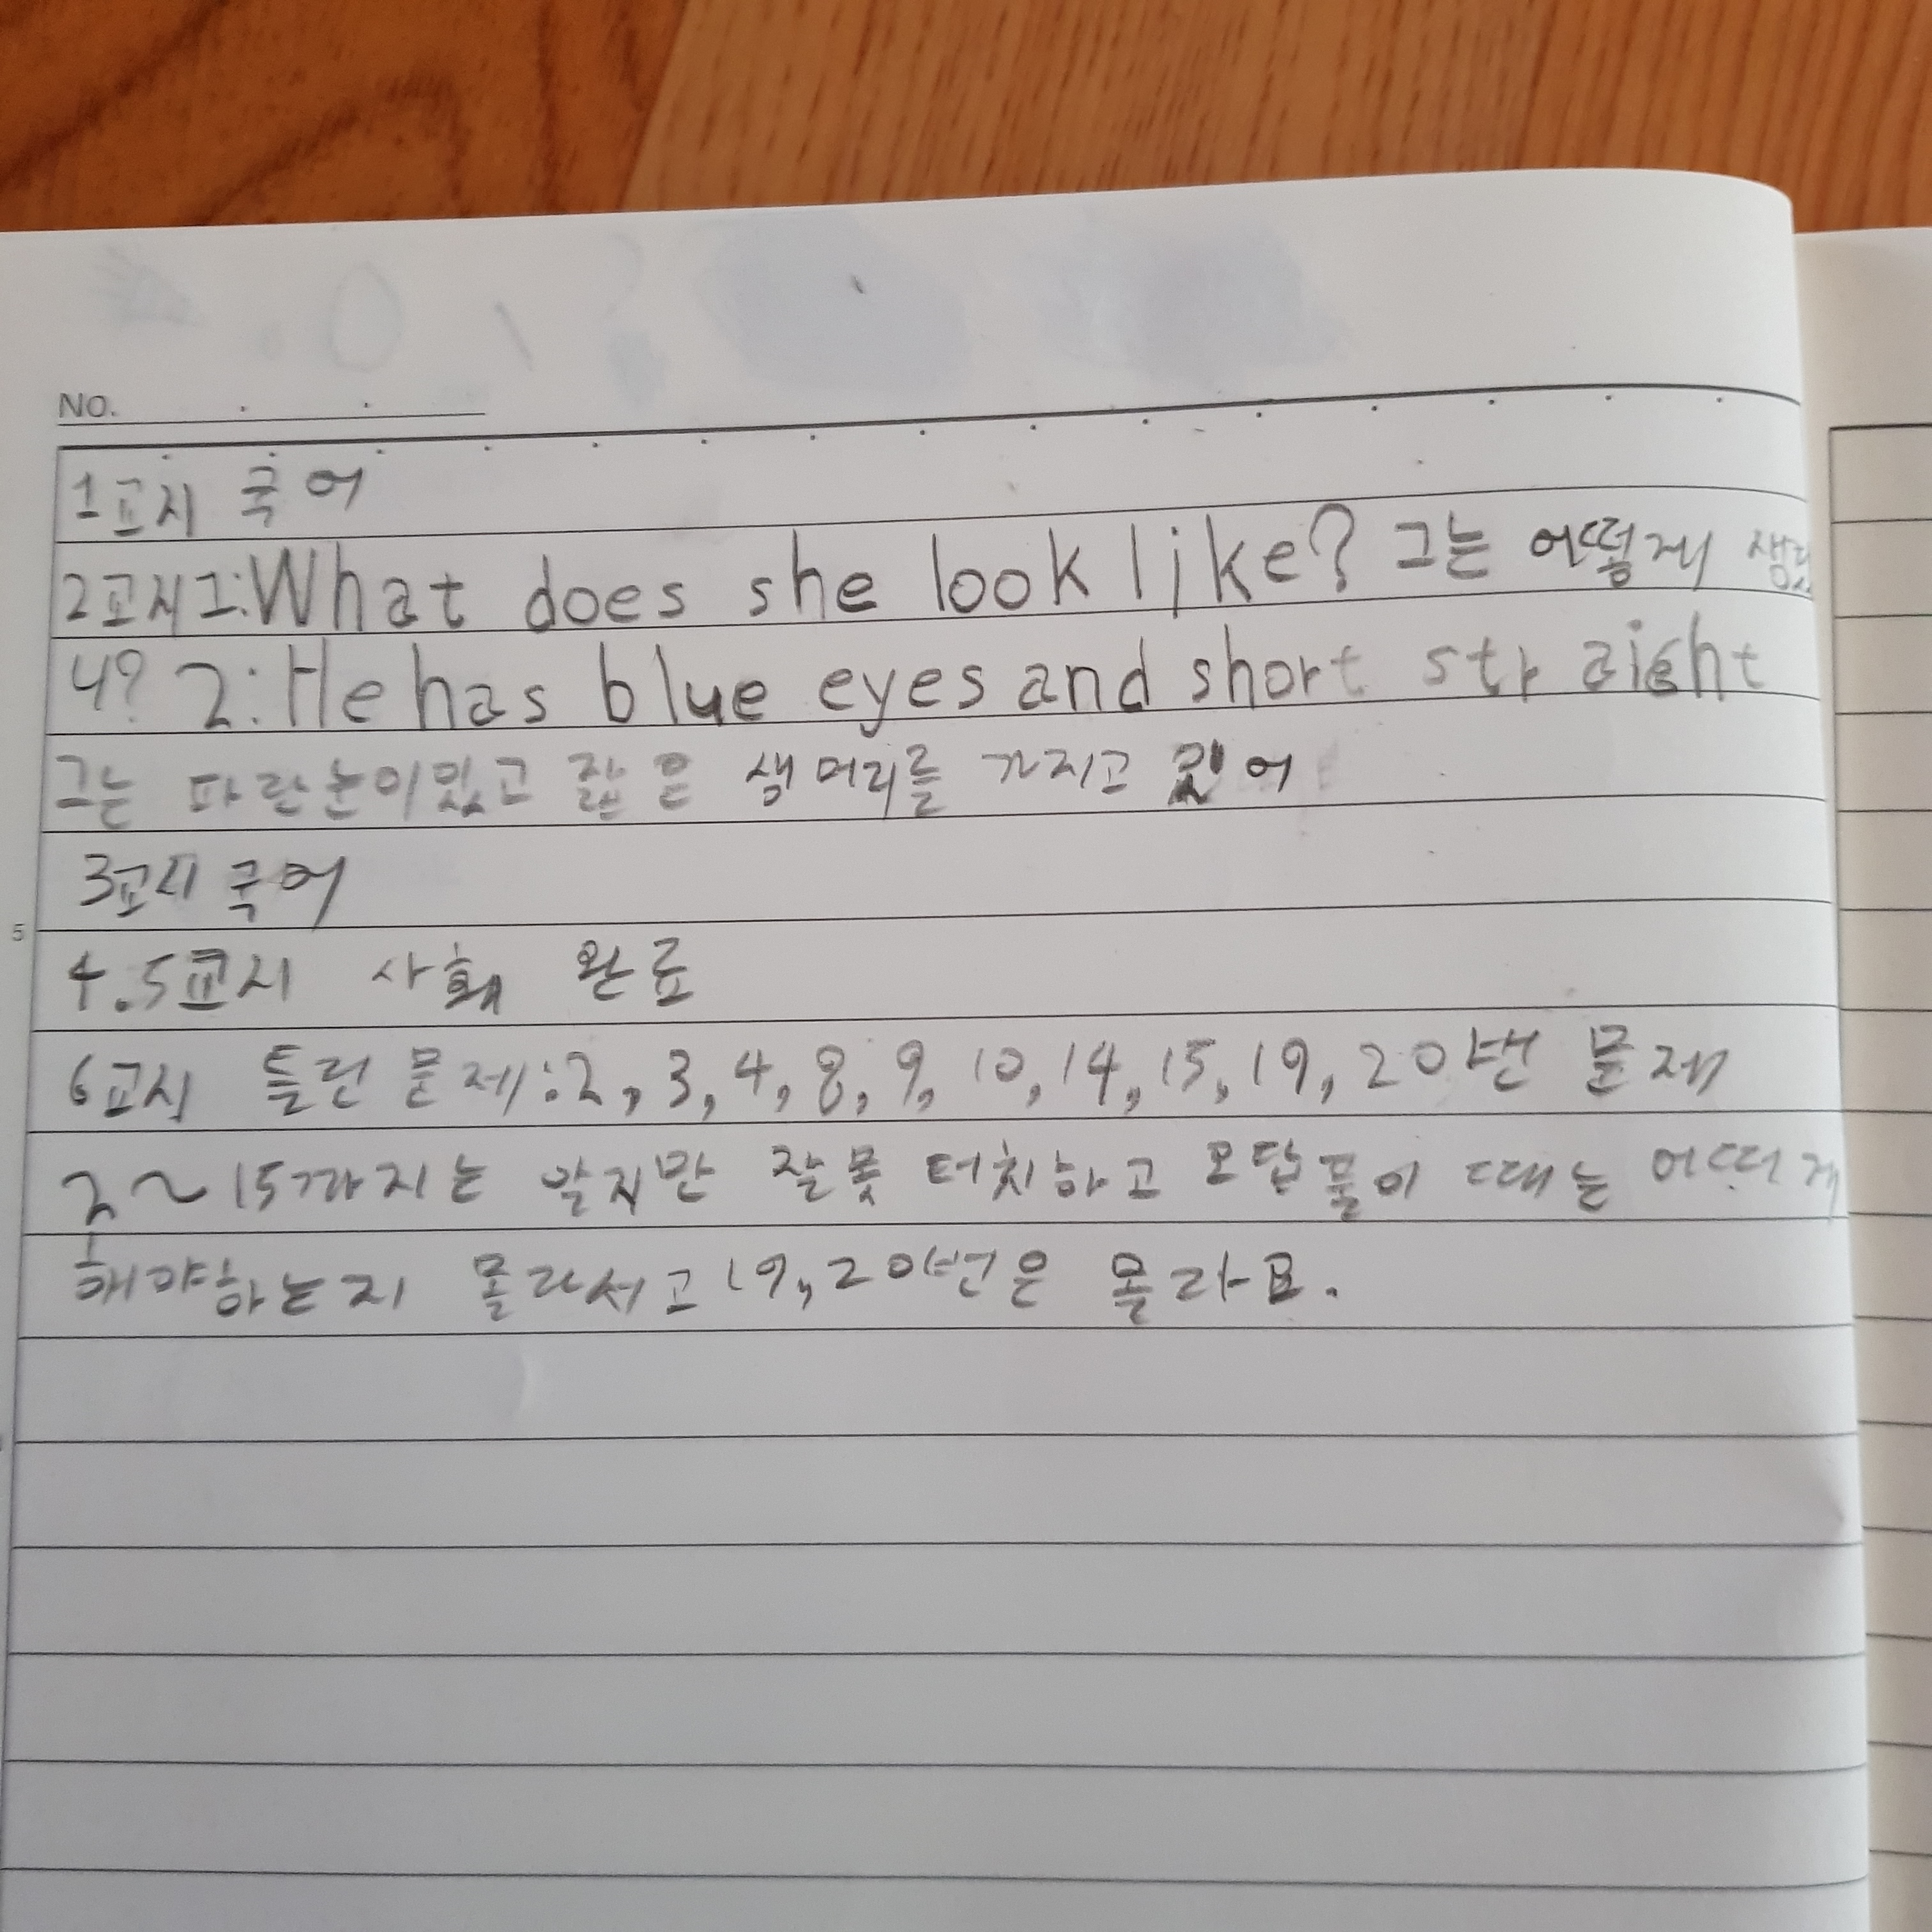 NO.
1교시 국어
2교시 1: What does she look like? 그는 어떻게 생겼
니? 2: He has blue eyes and short straight
그는 파란눈이있고 짧은 생머리를 가지고 있어
3교시 국어
5
4.5교시 사회 완료
6교시 틀린 문제:2, 3, 4, 8, 9, 10, 14, 15, 19, 20번 문제
2~15까지는 알지만 잘못 터치하고 오답풀이 때는 어떠게
해야하는지 몰라서고 19,20번은 몰라요.